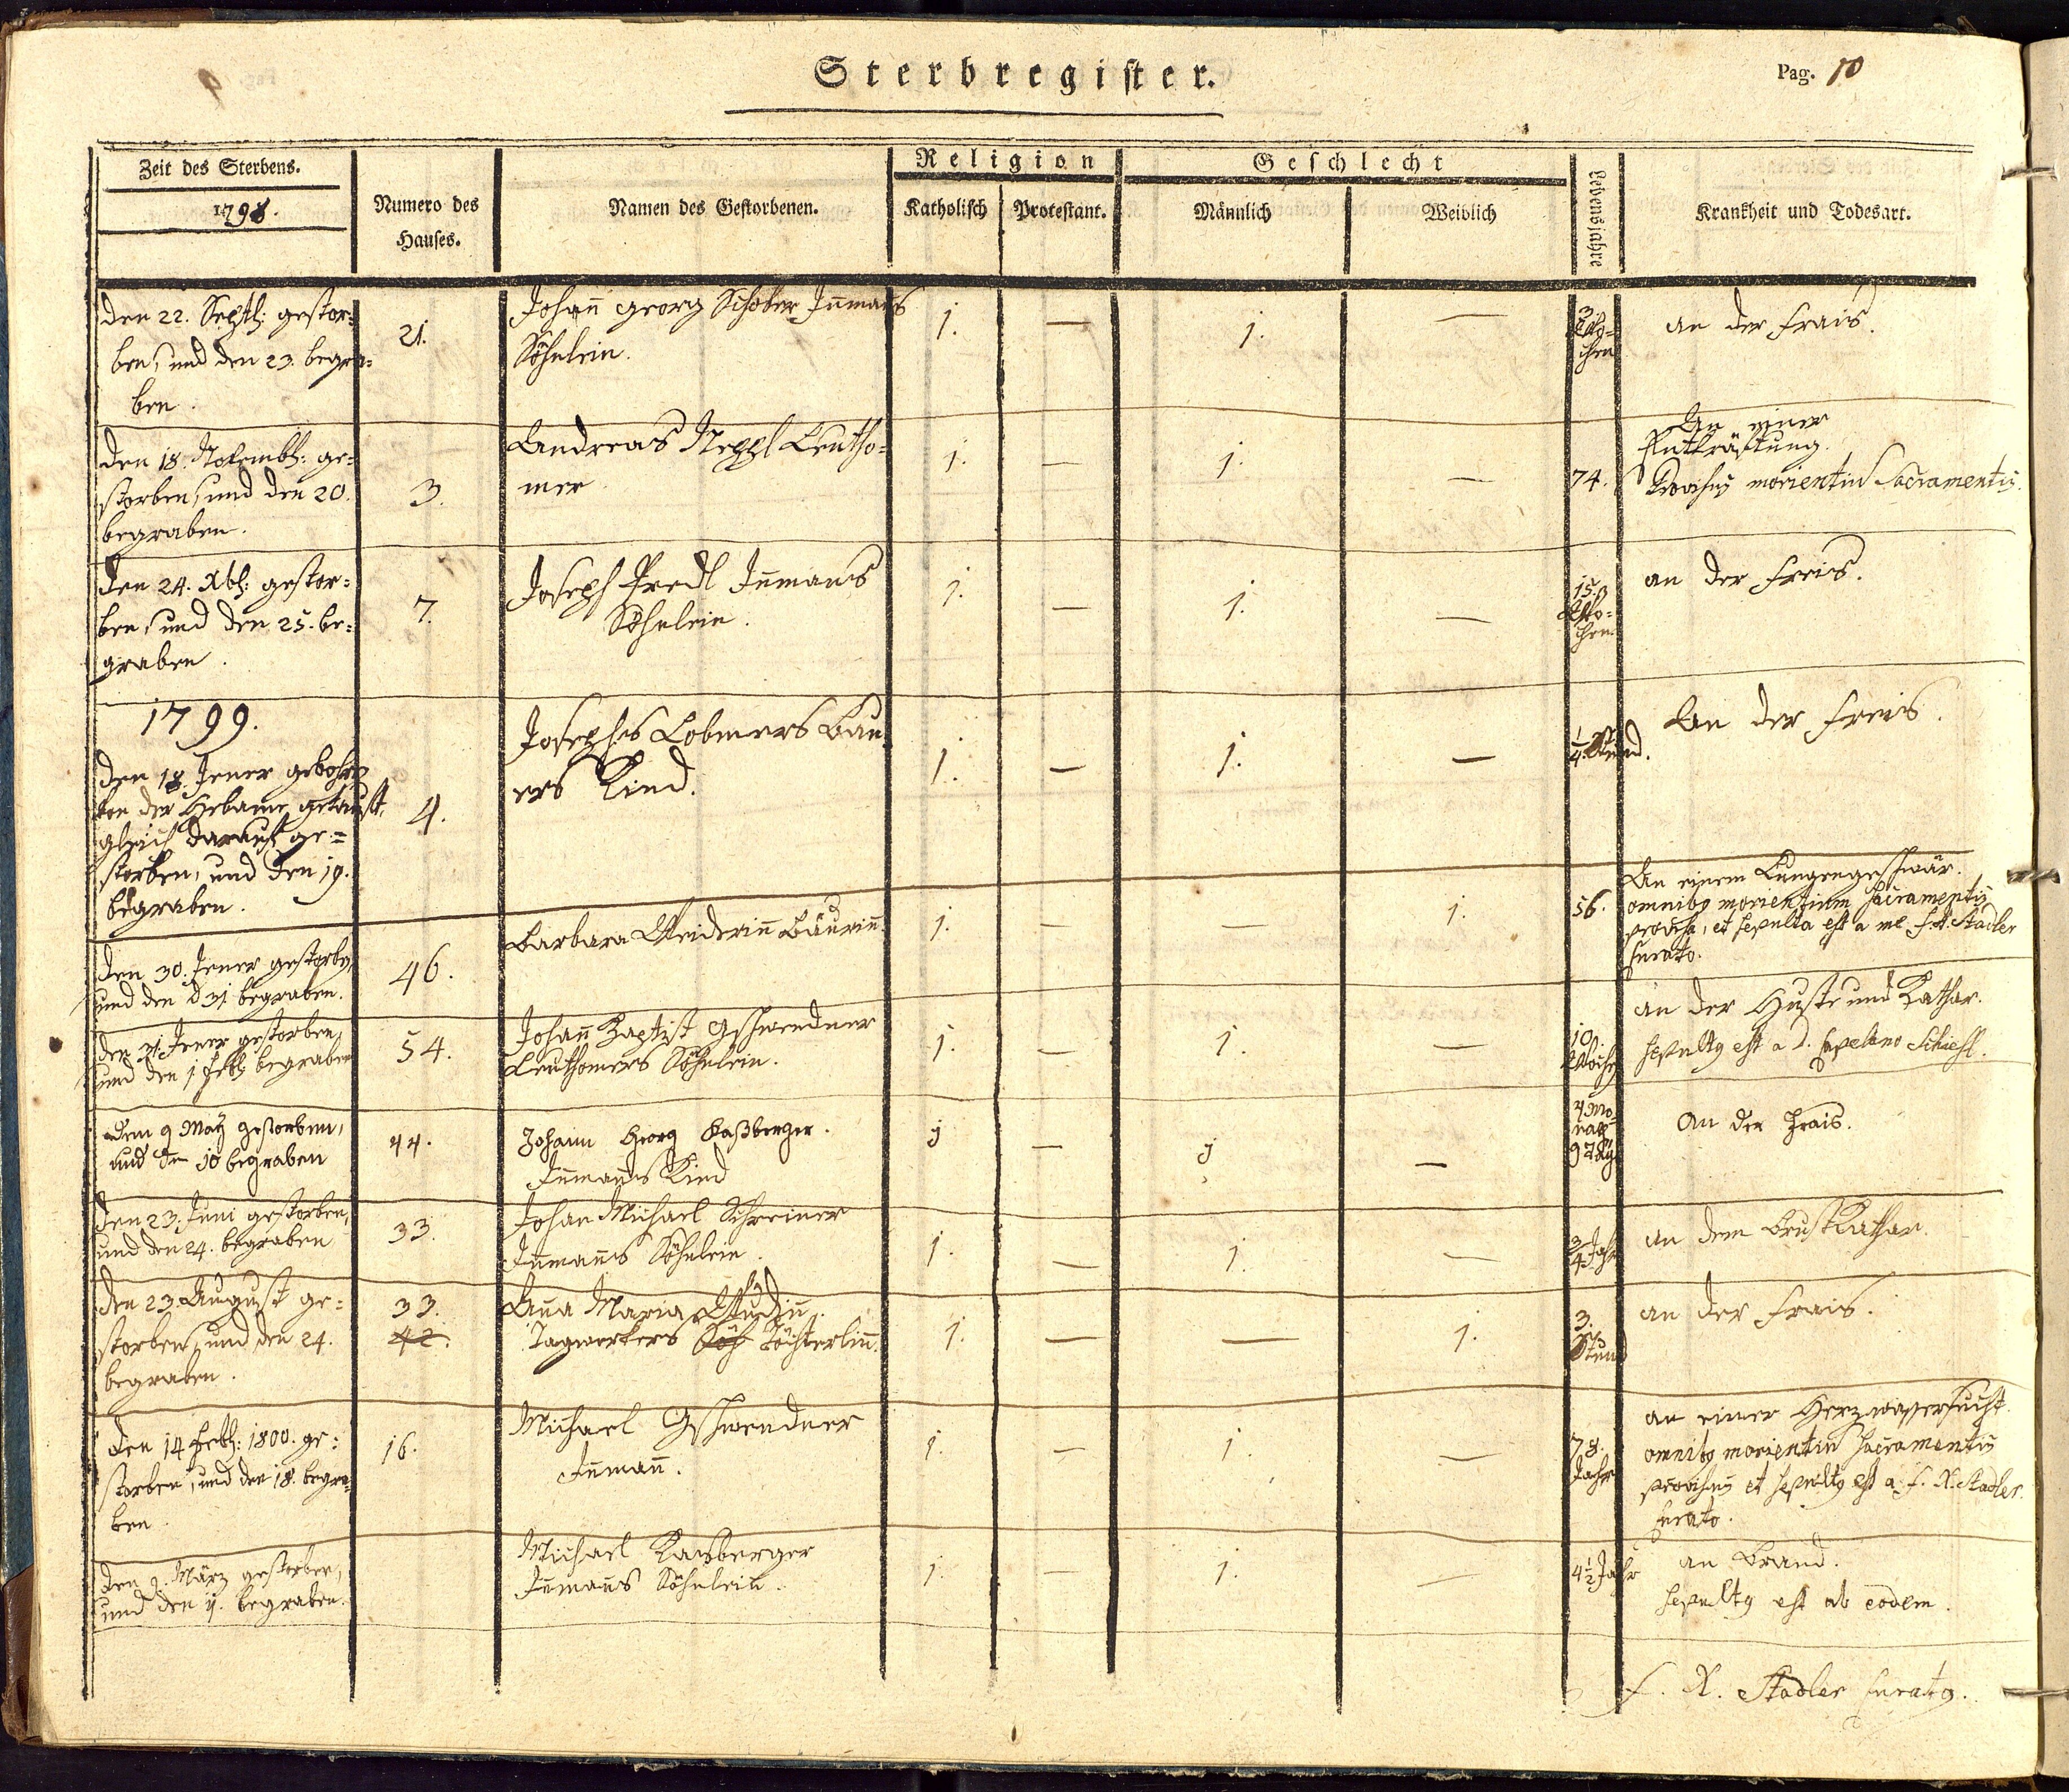 Sterbregister.
Pag. 10
Zeit des Sterbens.
1798.
Numero des
Hauses.
Namen des Gestorbenen.
Religion
Katholisch
Protestant.
Geschlecht
Männlich
Weiblich
Lebensjahre
Krankheit und Todesart.
den 22. Septb: gestor=
ben, und den 23. begra=
ben.
21.
Johann Georg Schober Innmans
Söhnlein.
1. — 1. —
3.
Wo=
chen
an der Frais.
den 18. Novemb: ge=
storben, und den 20.
begraben.
3.
Andreas Neppl Leutho=
mer
1. — 1. —
74.
An einer
Entkräftung.
provisus morientiū Sacramentis.
den 24. Xb: gestor=
ben, und den 25. be=
graben.
7.
Joseph Predl Innmans
Söhnlein.
1. — 1. —
15.
Wo=
chen
an der Freis.
1799.
den 18. Jener gebohrn
von der Hebame getauft,
gleich darauf ge=
storben, und den 19.
begraben.
4.
Josephs Lobmers Bau
ers Kind.
1. — 1. —
1/4 Stund.
An der Freis.
den 30. Jener gestorbn,
und den d 31 begraben.
46.
Barbara Weiderinn Bäurinn.
1. — — 1.
56.
An einem Lungengeschwär.
omnibus morientium Sacramentis
provisa, et sepulta est a me F. X. Stadler
Curato.
den 31. Jener gestorben,
und den 1 Feb: begraben
54.
Johann Baptist Gschwendner
Leuthomers Söhnlein.
1. — 1. —
10.
Woche
an der Huste und Kathar.
sepultus est a D. Capelano Schiesl.
den 9 Marz gestorben,
und den 10 begraben
44.
Johann Georg Kaßberger.
Innmans Kind
j — j —
4 Mo
nath
9 Täg
An der Frais.
den 23. Juni gestorben,
und den 24. begraben
33.
Johan Michael Schreiner
Innmanns Söhnlein.
1. — 1. —
3/4 Jahr
an dem Brustkathar.
den 23. August ge=
storben, und den 24.
begraben.
33.
42.
Anna Maria
Tagwerkers Söh Töchterlinn.
1. — — 1.
3.
Stund
an der Frais.
den 14 Feb: 1800. ge=
storben, und den 18. begra=
ben
16.
Michael Gschwendner
Innmann.
1. — 1. —
78.
Jahr
an einer Herzwassersucht.
omnibus morientiū Sacramentis
provisus et sepultus est a F. X. Stadler.
Curato.
den 9. März gestorben,
und den 11. begraben.
Michael Kasberger
Innmans Söhnlein.
1. — 1. —
4 1/2 Jahr
an Brand.
sepultus est ab eodem.
F. X. Stadler Curatus.